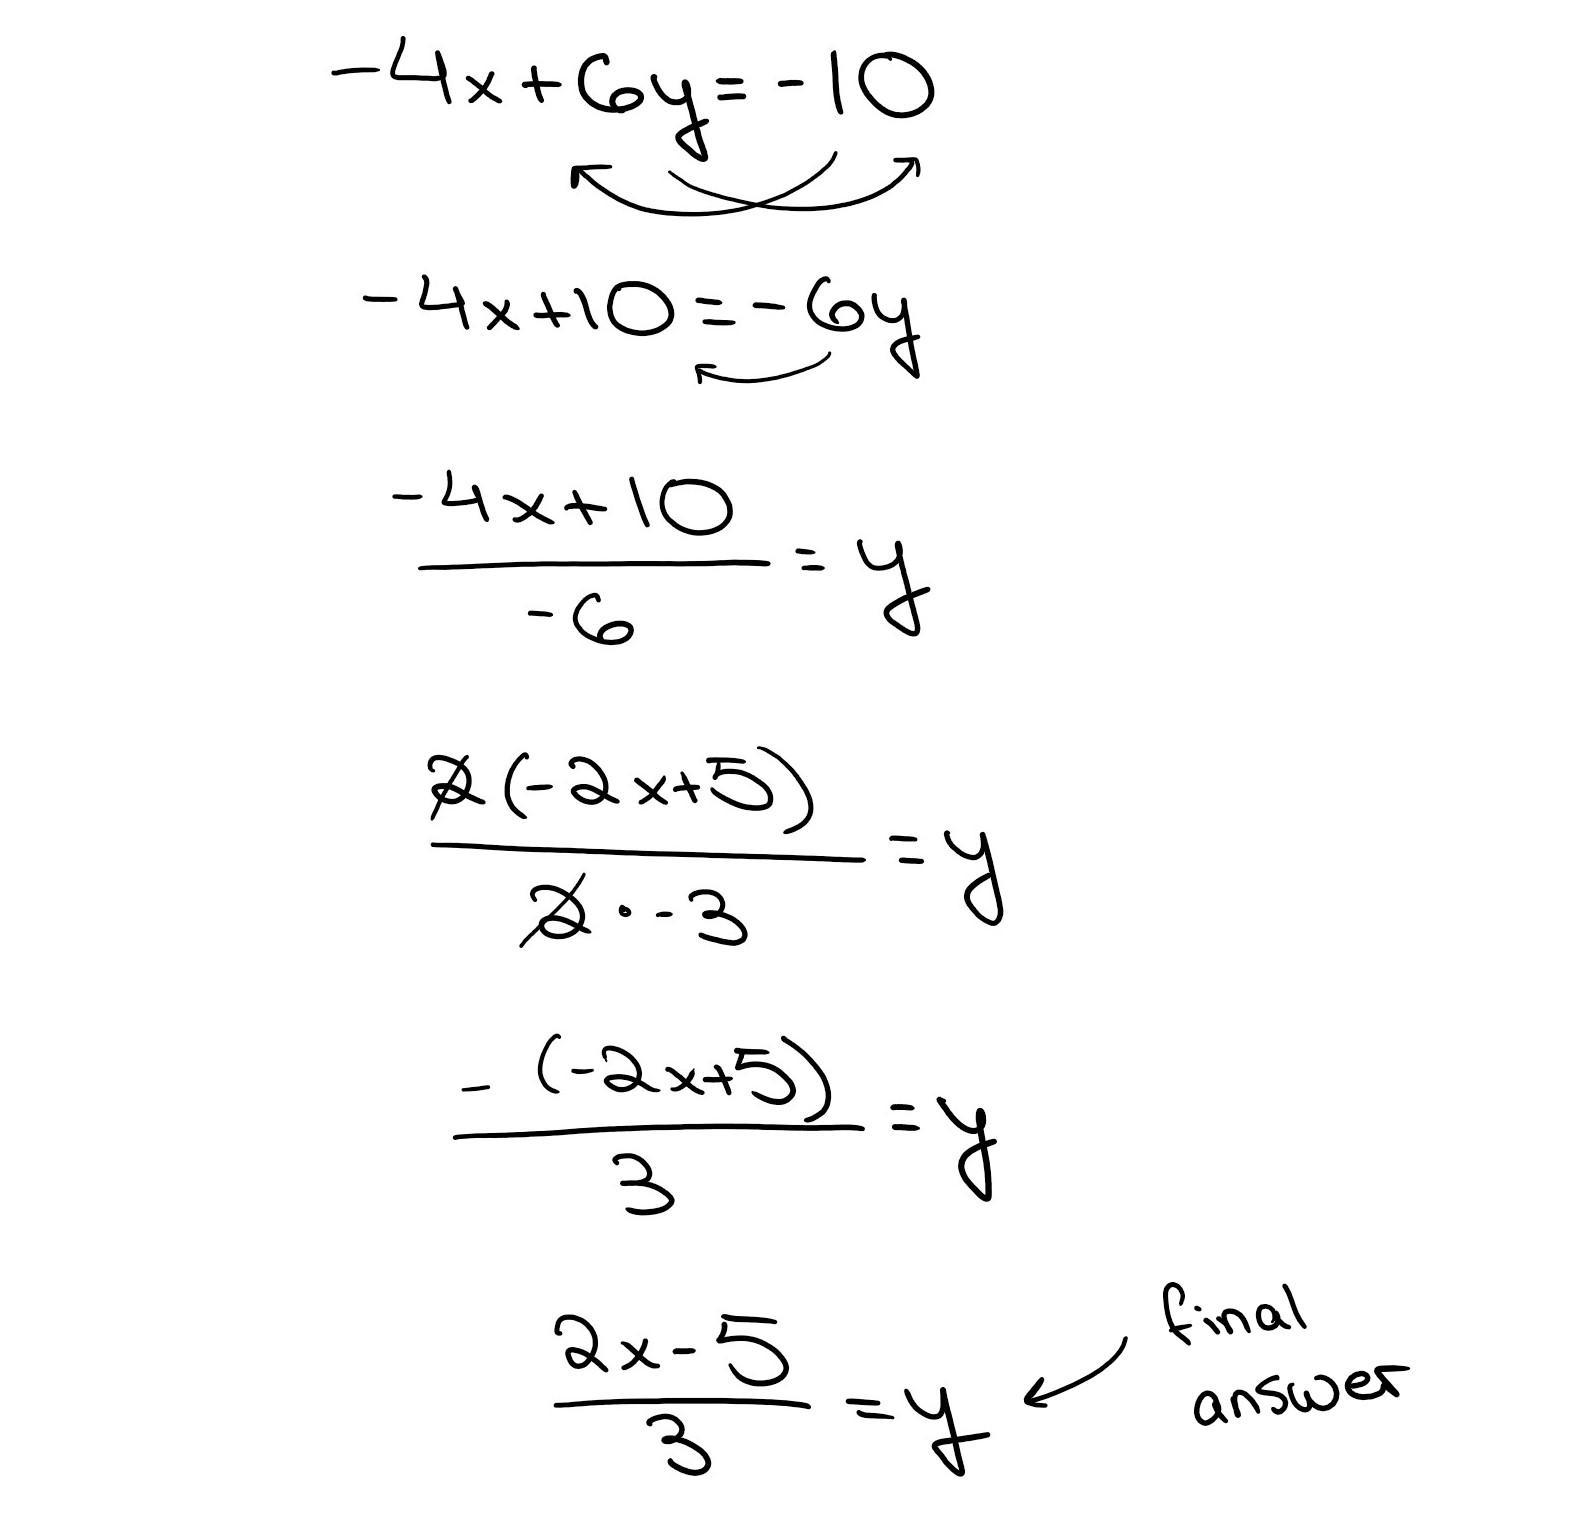 -4x+6y=-10
-4x+10=-6y
-4x+10
-6
=y
2(-2x+5)
2·-3
=y
-(-2x+5)
3
=y
2x-5
3
=y
final
answer